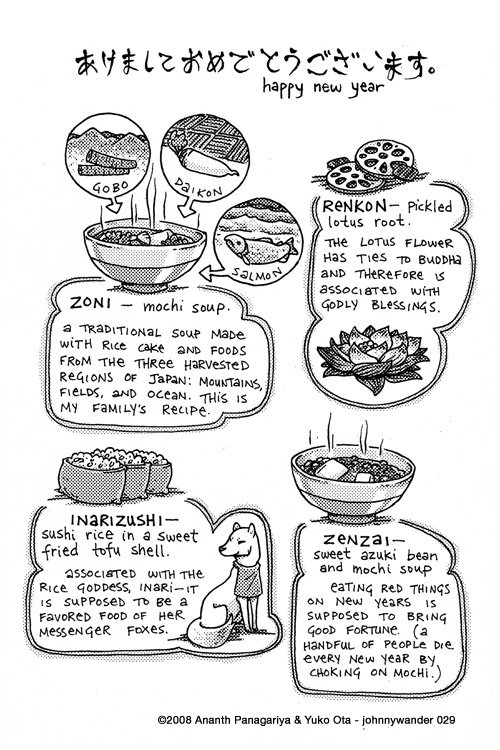 あけましておめでとうございます。
happy new year
GOBO
DAIKON
SALMON
ZONI — mochi soup.
A TRADITIONAL SOUP MADE
WITH RICE CAKE AND FOODS
FROM THE THREE HARVESTED
REGIONS OF JAPAN: MOUNTAINS,
FIELDS, AND OCEAN. THIS IS
MY FAMILY'S RECIPE.
RENKON — pickled
lotus root.
THE LOTUS FLOWER
HAS TIES TO BUDDHA
AND THEREFORE IS
ASSOCIATED WITH
GODLY BLESSINGS.
INARIZUSHI —
sushi rice in a sweet
fried tofu shell.
ASSOCIATED WITH THE
RICE GODDESS, INARI — IT
IS SUPPOSED TO BE A
FAVORED FOOD OF HER
MESSENGER FOXES.
ZENZAI —
sweet azuki bean
and mochi soup
EATING RED THINGS
ON NEW YEARS IS
SUPPOSED TO BRING
GOOD FORTUNE. (A
HANDFUL OF PEOPLE DIE
EVERY NEW YEAR BY
CHOKING ON MOCHI.)
©2008 Ananth Panagariya & Yuko Ota - johnnywander 029